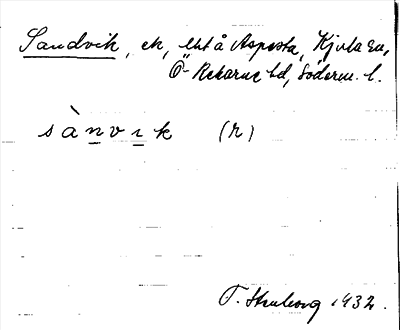 Sandvik, ek, Ekt å Aspesta, Kjula sn,
Ö-Rekarne hd, Söderm. l.
sànvık (r)
1932.